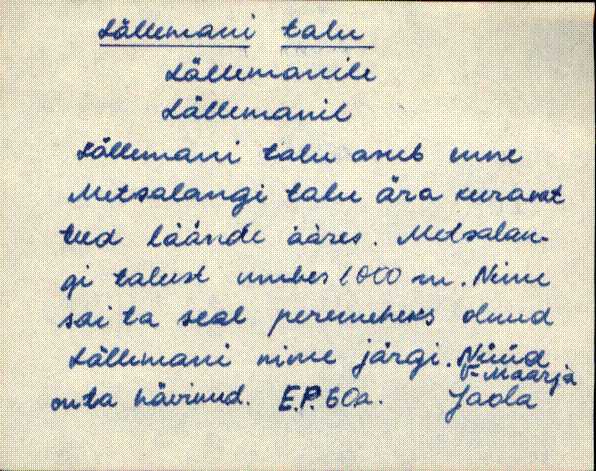 Lällemani talu
Lällemanile
Lällemanil
Lällemani talu asub enne
Metsalangi talu ära keeravat
teed läände ääres. Metsalan-
gi talust umbes 1000 m. Nime
sai ta seal peremeheks olnud
Lällemani nime järgi. Nüüd
V-Maarja
on ta hävinud. E.P. 60a. Jaola